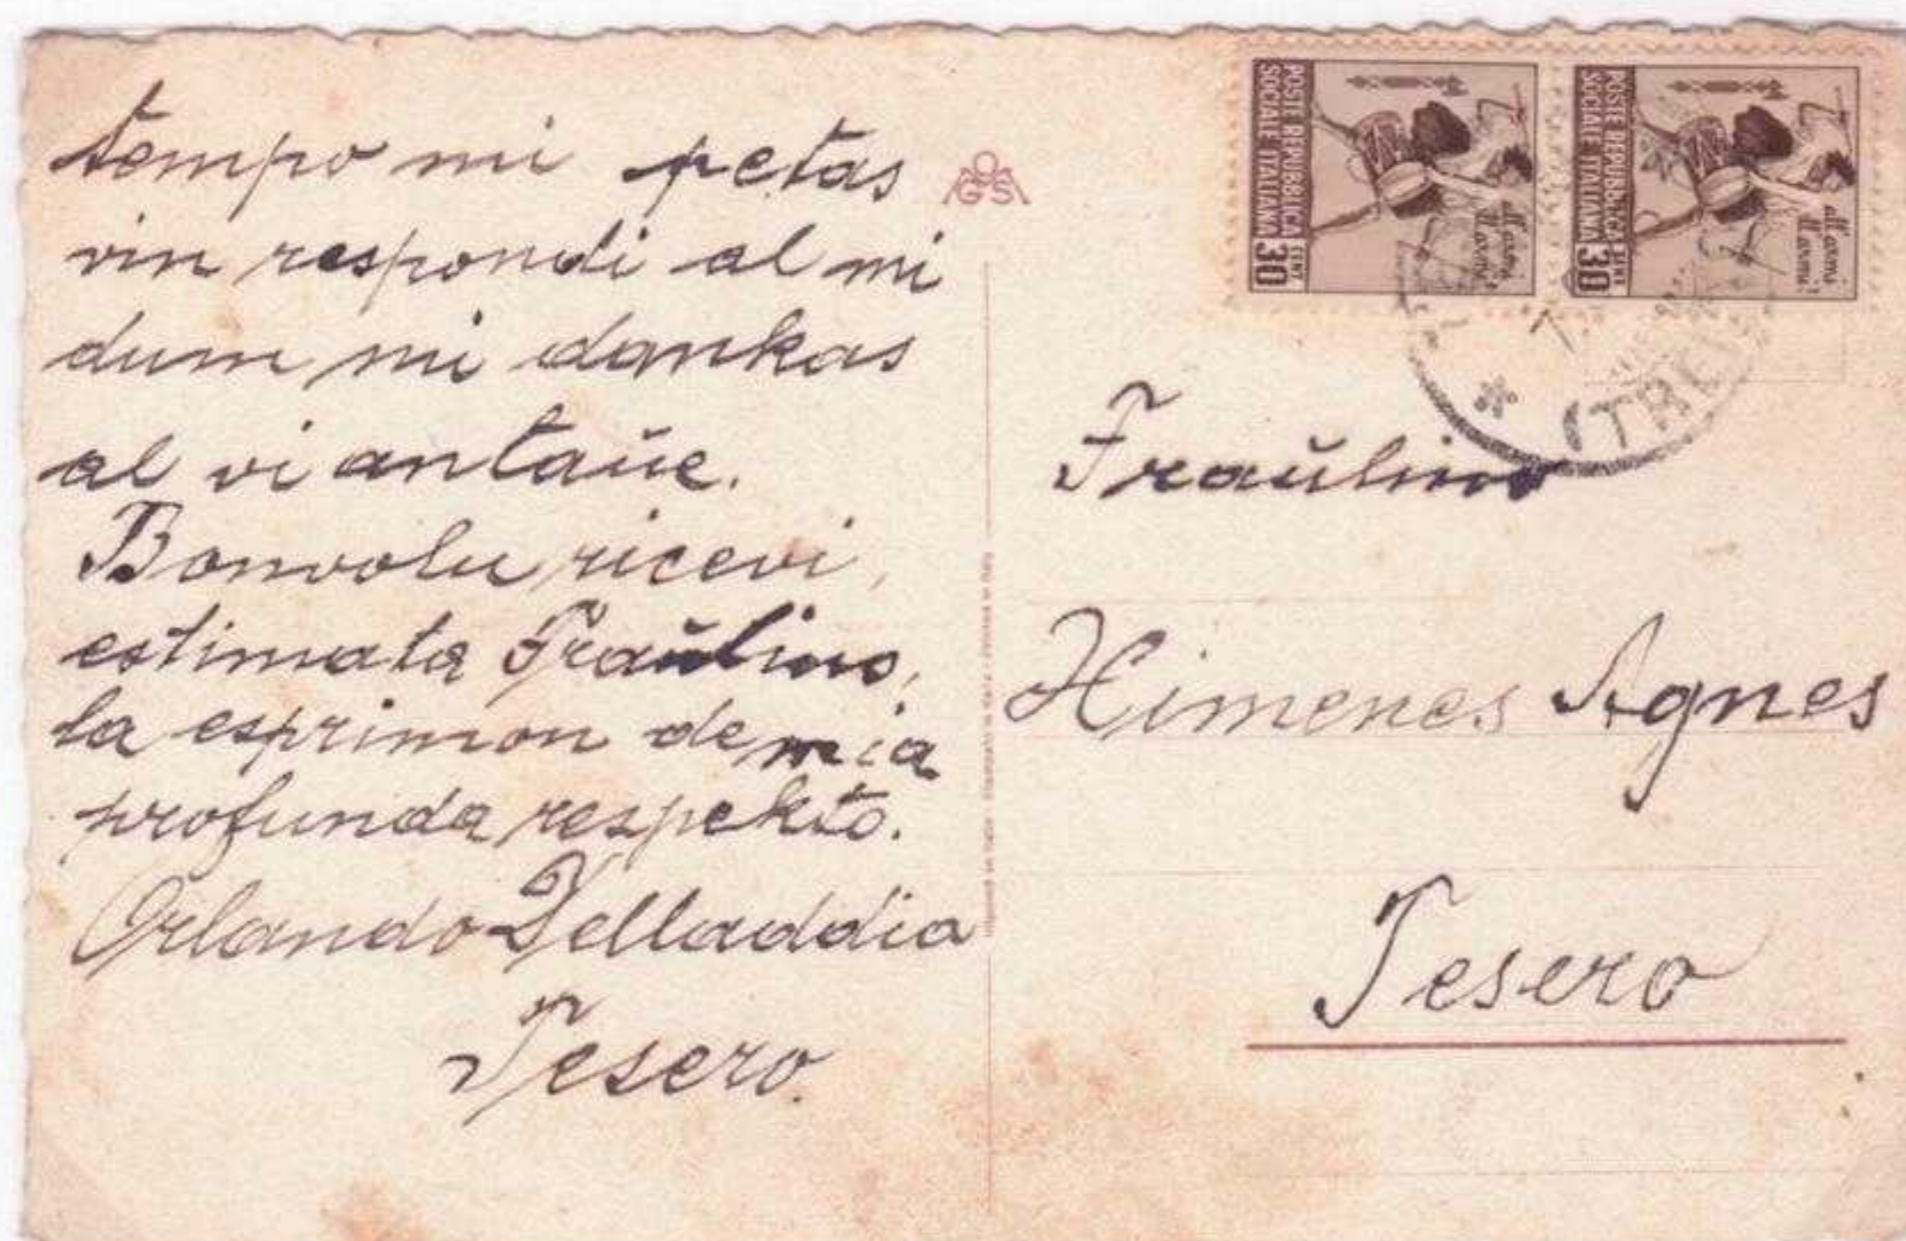 tempo mi petas
vin respondi al mi
dum mi dankas
al vi antaŭe.
Bonvolu ricevi,
estimata Fraŭlino,
la esprimon de mia
profunda respekto.
Orlando Delladdia
Tesero.
OGSA
POSTE REPUBBLICA
SOCIALE ITALIANA
CENT
30
POSTE REPUBBLICA
SOCIALE ITALIANA
CENT
30
(TRE
Fraŭlino
Himenes Agnes
Tesero